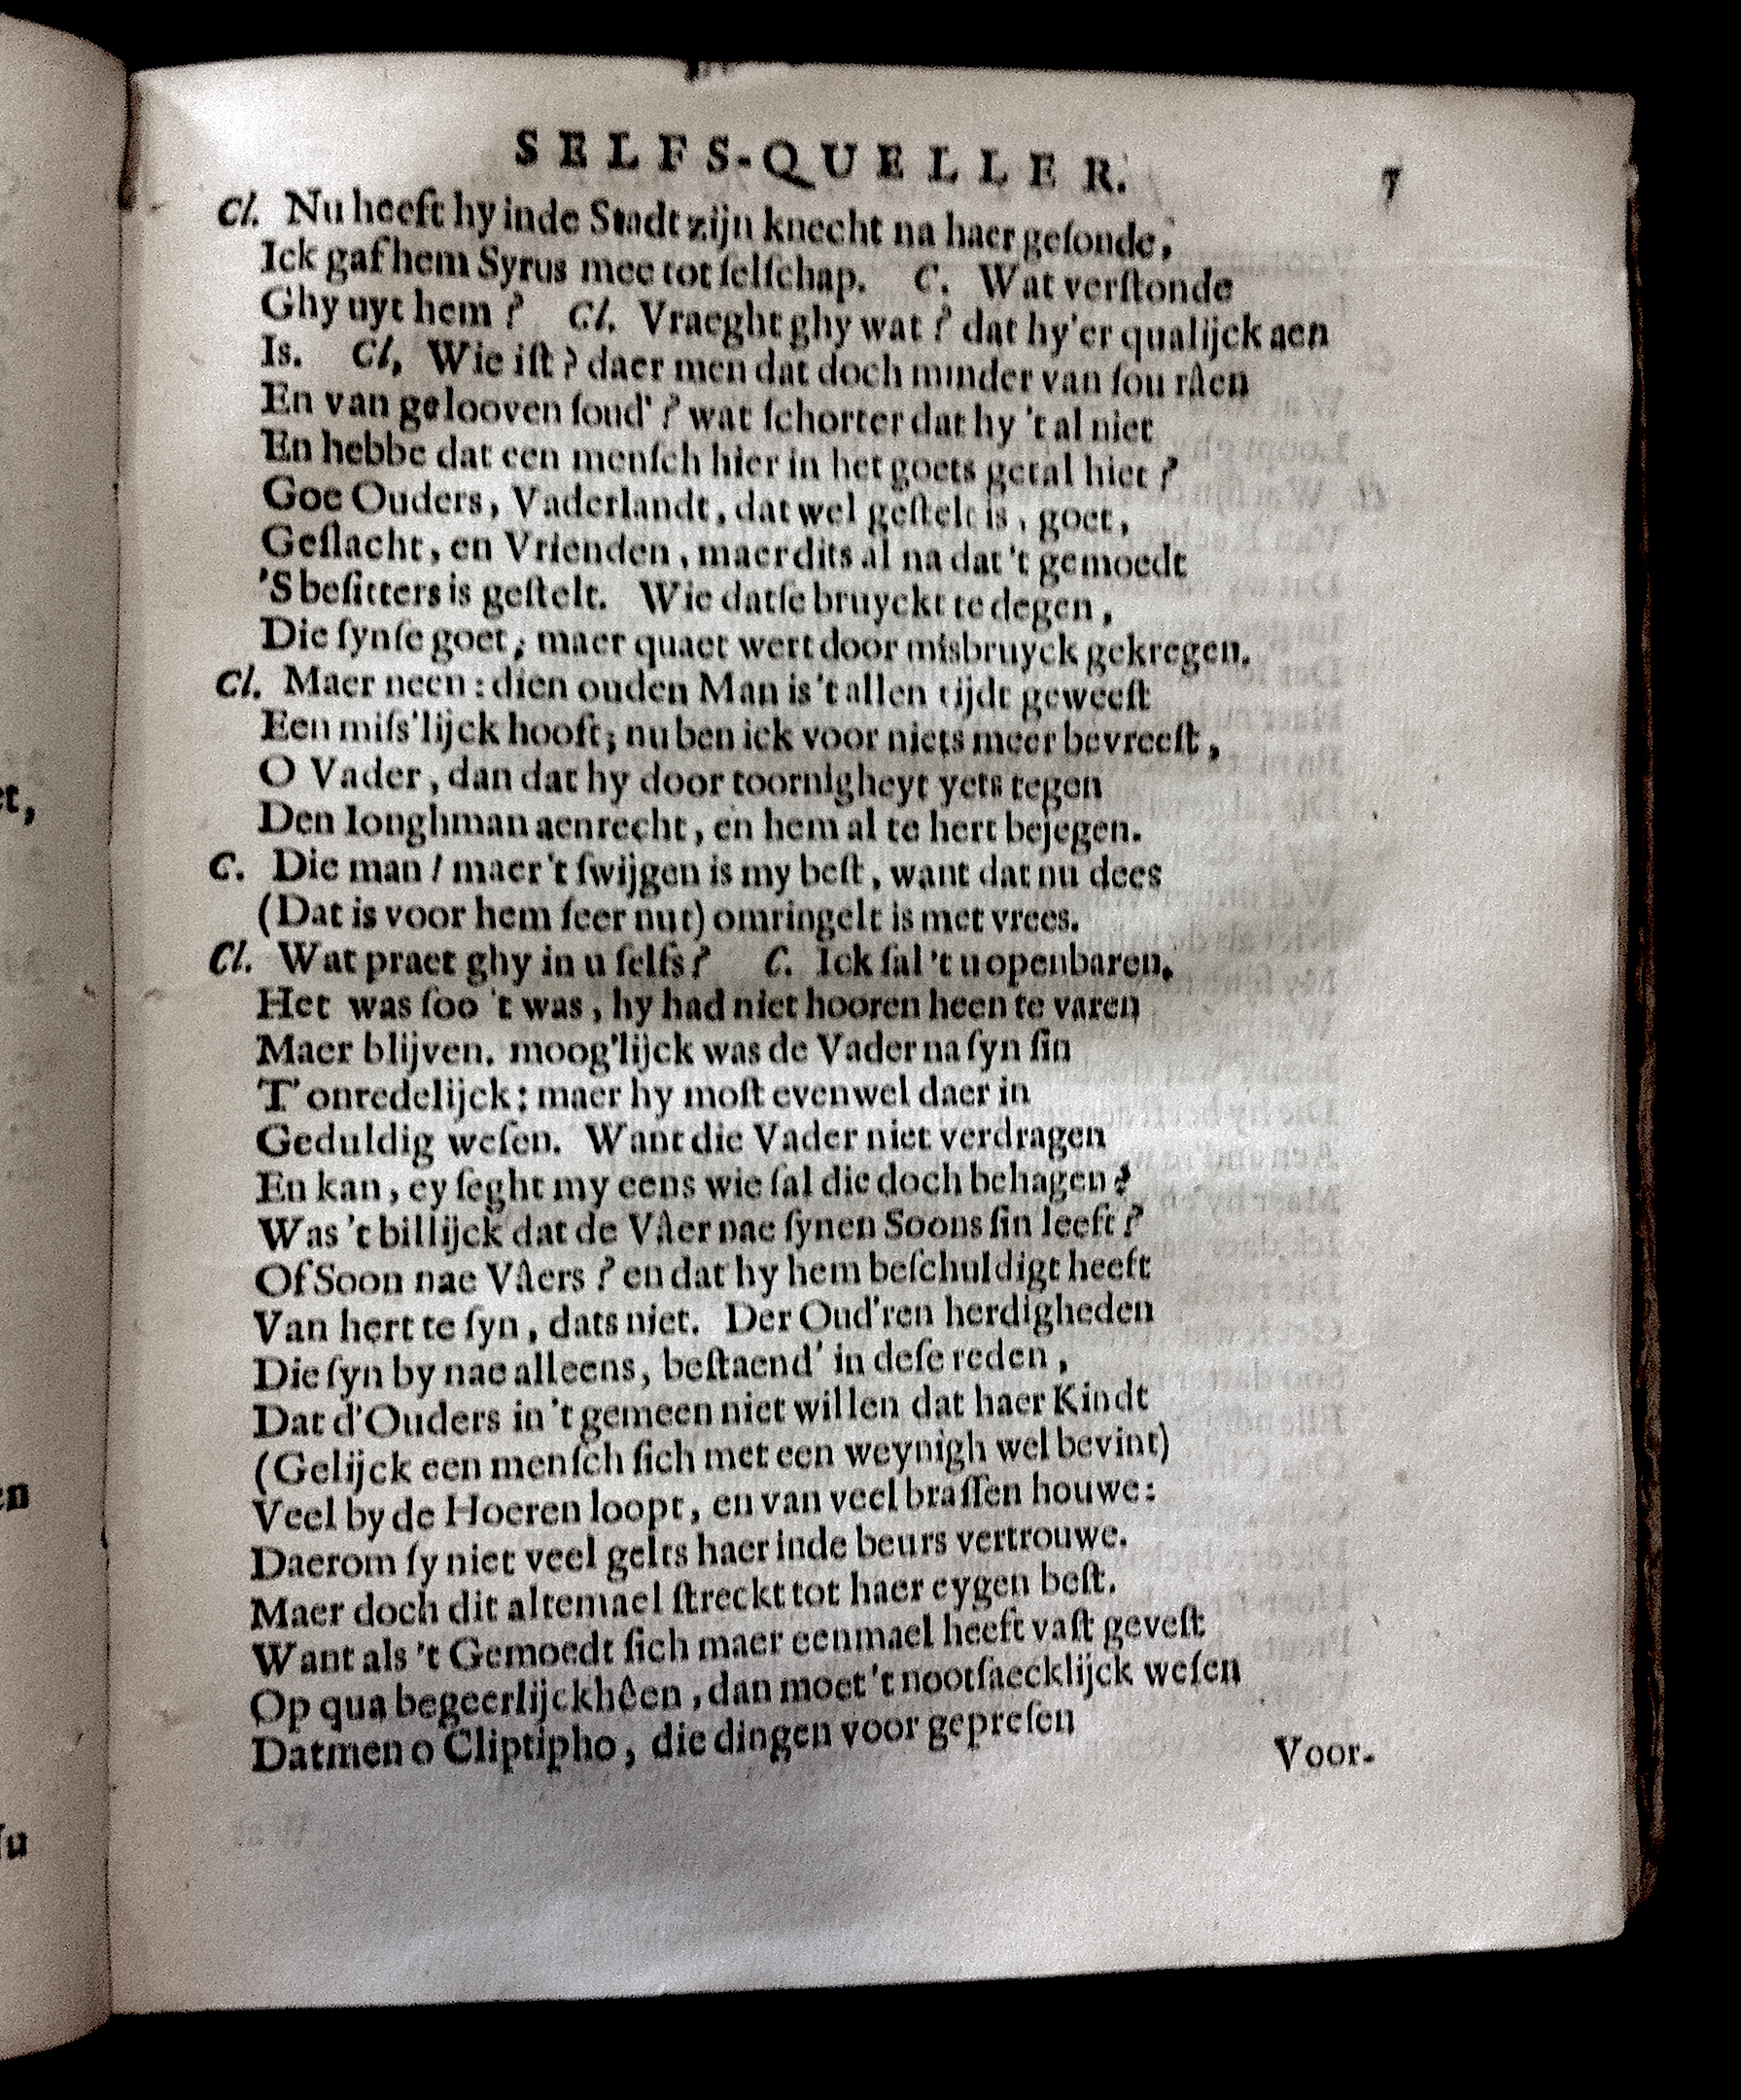 SELFS-QUELLER. 7
Cl. Nu heeft hy inde Stadt zijn knecht na haer geſonde,
Ick gaf hem Syrus mee tot ſelſchap. C. Wat verſtonde
Ghy uyt hem? Cl. Vraeght ghy wat? dat hy'er qualijck aen
Is. Cl, Wie iſt? daer men dat doch minder van ſou râen
En van gelooven ſoud'? wat ſchorter dat hy 't al niet
En hebbe dat een menſch hier in het goets getal hiet?
Goe Ouders, Vaderlandt, dat wel geſtelt is, goet,
Geſlacht, en Vrienden, maer dits al na dat 't gemoedt
'S beſitters is geſtelt. Wie datſe bruyckt te degen,
Die ſynſe goet; maer quaet wert door misbruyck gekregen.
Cl. Maer neen: dien ouden Man is 't allen tijdt geweeſt
Een miſs'lijck hooft; nu ben ick voor niets meer bevreeſt,
O Vader, dan dat hy door toornigheyt yets tegen
Den Ionghman aenrecht, en hem al te hert bejegen.
C. Die man! maer 't ſwijgen is my beſt, want dat nu dees
(Dat is voor hem ſeer nut) omringelt is met vrees.
Cl. Wat praet ghy in u ſelfs? C. Ick ſal 't u openbaren.
Het was ſoo 't was, hy had niet hooren heen te varen
Maer blijven. moog'lijck was de Vader na ſyn ſin
T' onredelijck: maer hy moſt evenwel daer in
Geduldig weſen. Want die Vader niet verdragen
En kan, ey ſeght my eens wie ſal die doch behagen?
Was 't billijck dat de Vâer nae ſynen Soons ſin leeft?
Of Soon nae Vâers? en dat hy hem beſchuldigt heeft
Van hert te ſyn, dats niet. Der Oud'ren herdigheden
Die ſyn by nae alleens, beſtaend' in deſe reden,
Dat d'Ouders in 't gemeen niet willen dat haer Kindt
(Gelijck een menſch ſich met een weynigh wel bevint)
Veel by de Hoeren loopt, en van veel braſſen houwe:
Daerom ſy niet veel gelts haer inde beurs vertrouwe.
Maer doch dit altemael ſtreckt tot haer eygen beſt.
Want als 't Gemoedt ſich maer eenmael heeft vaſt geveſt
Op qua begeerlijckhêen, dan moet 't nootſaecklijck weſen
Datmen o Cliptipho, die dingen voor gepreſen
Voor-